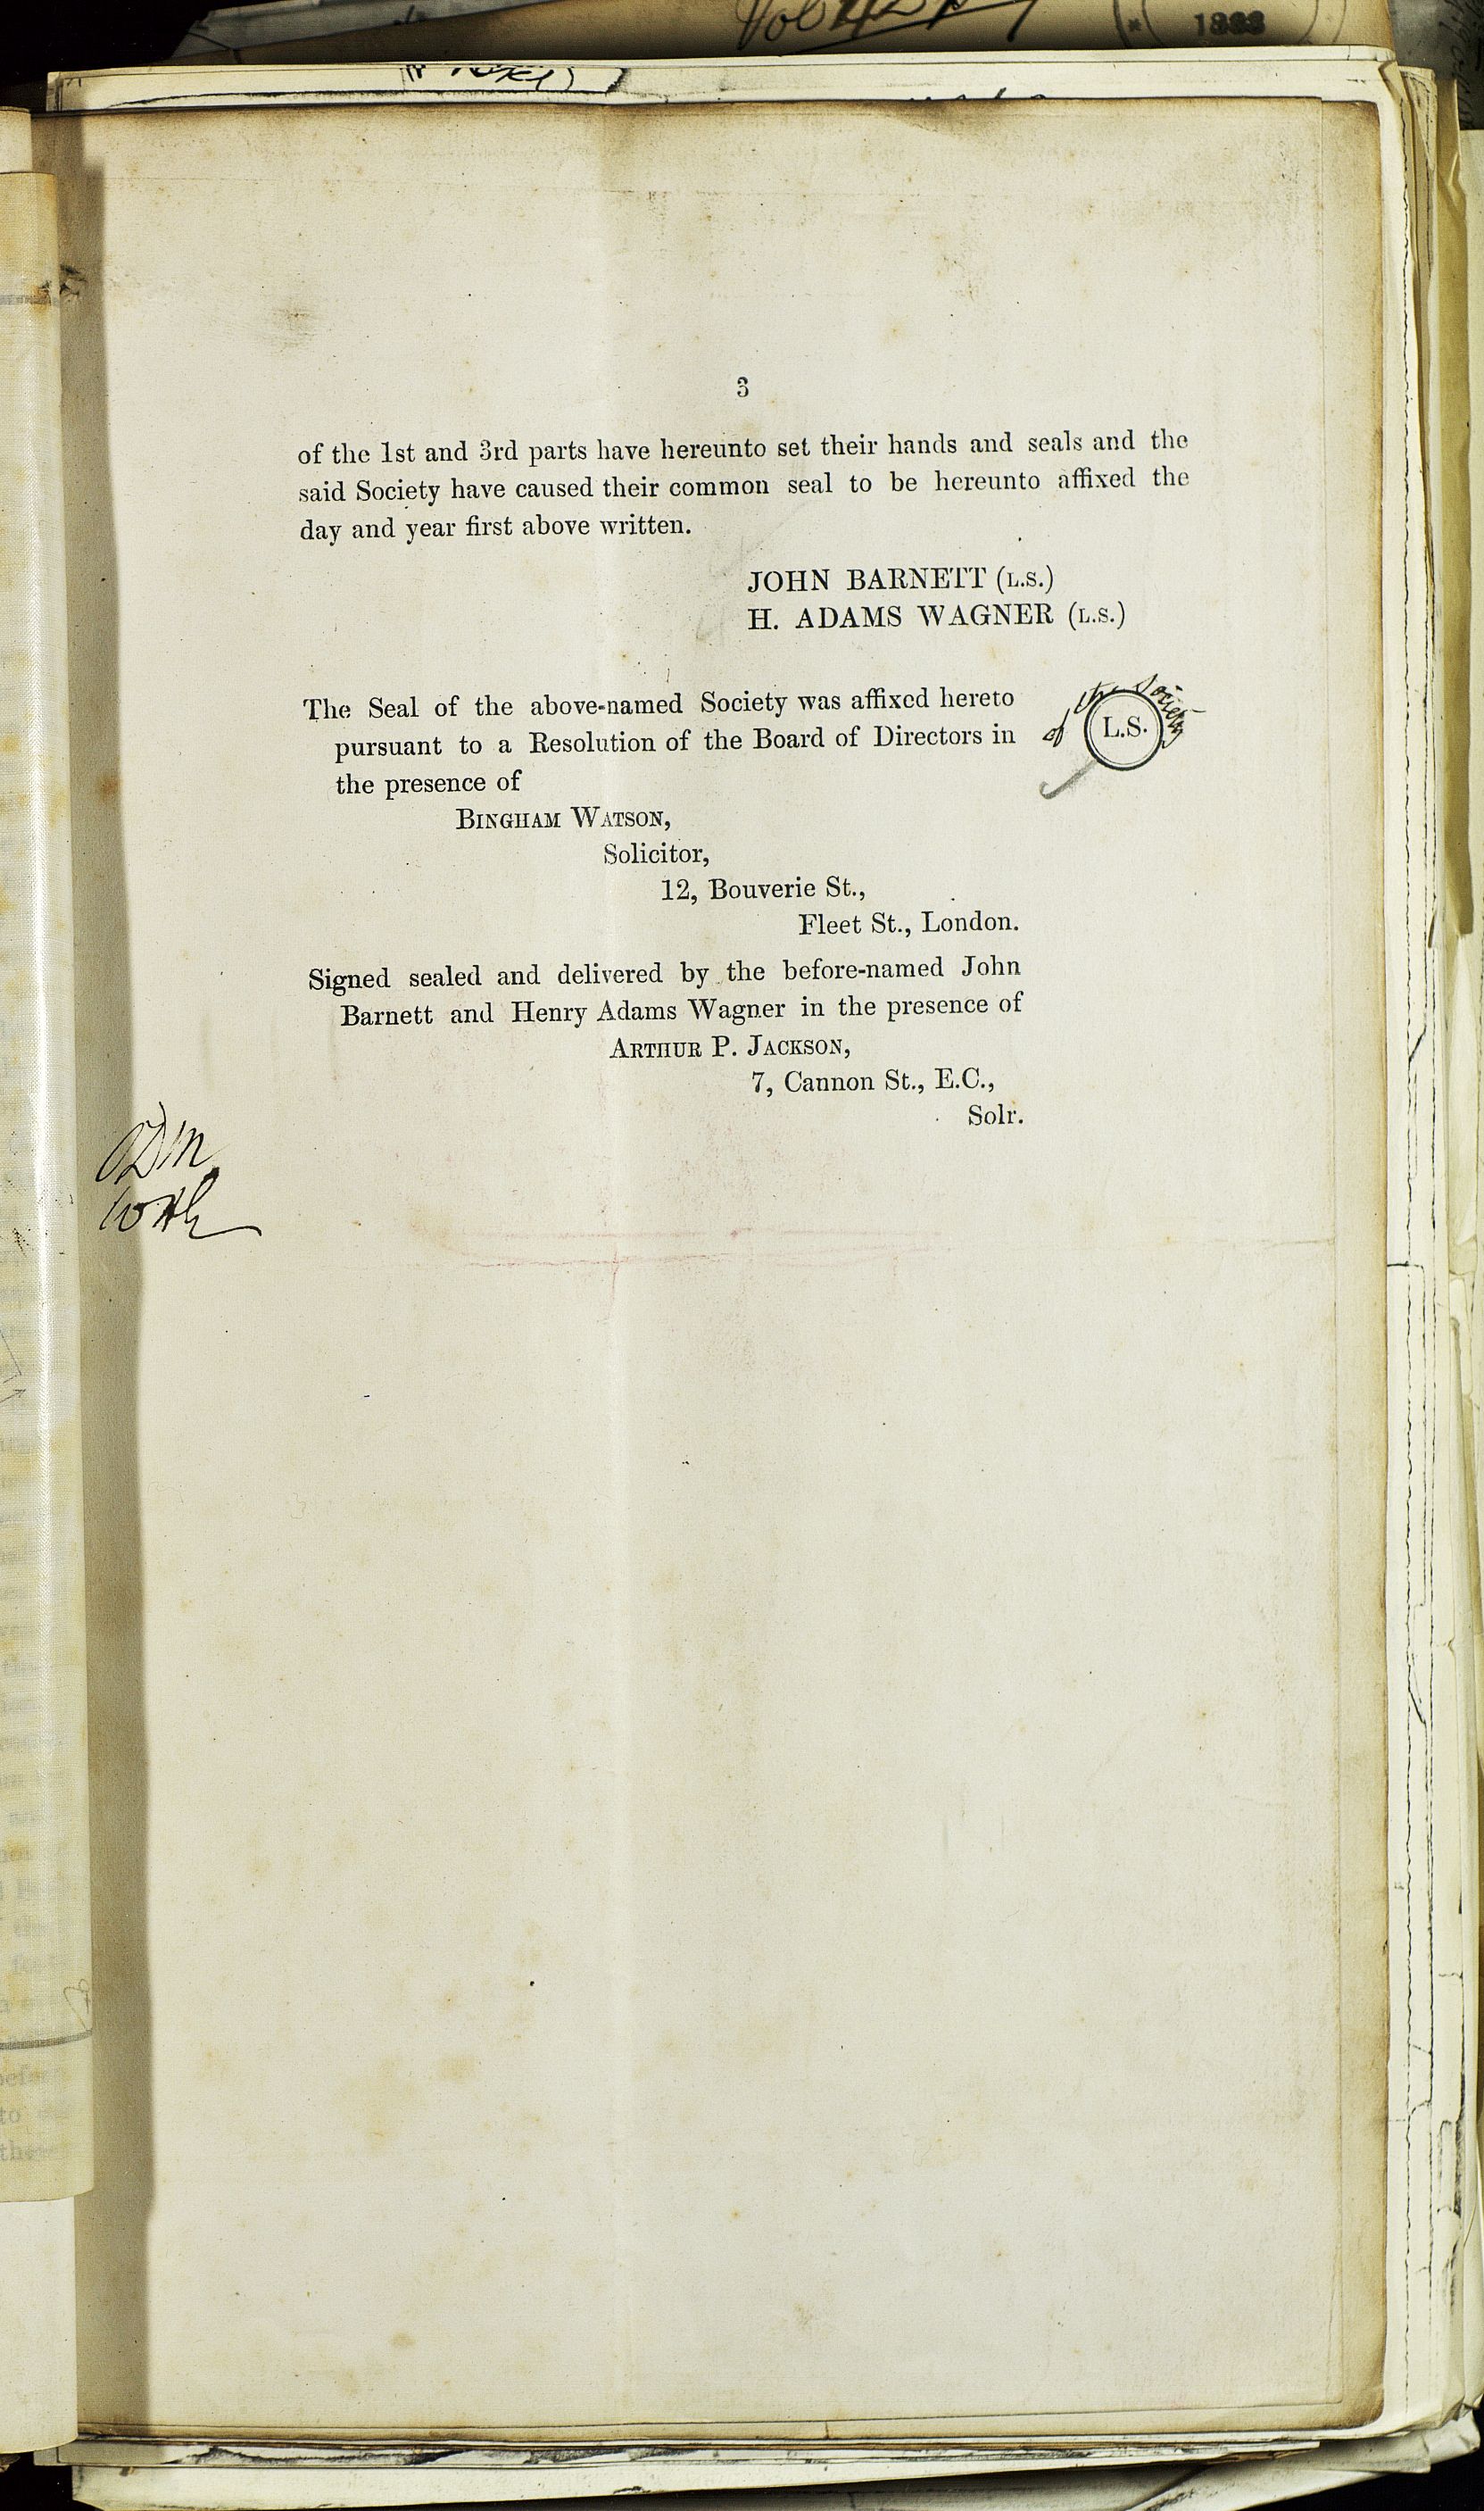 1883
3
of the 1st and 3rd parts have hereunto set their hands and seals and the
said Society have caused their common seal to be hereunto affixed the
day and year first above written.
JOHN BARNETT (L.S.)
H. ADAMS WAGNER (L.S.)
The Seal of the above-named Society was affixed hereto
of the Society
L.S.
pursuant to a Resolution of the Board of Directors in
the presence of
BINGHAM WATSON,
Solicitor,
12, Bouverie St.,
Fleet St., London.
Signed sealed and delivered by the before-named John
Barnett and Henry Adams Wagner in the presence of
ARTHUR P. JACKSON,
7, Cannon St., E.C.,
Solr.